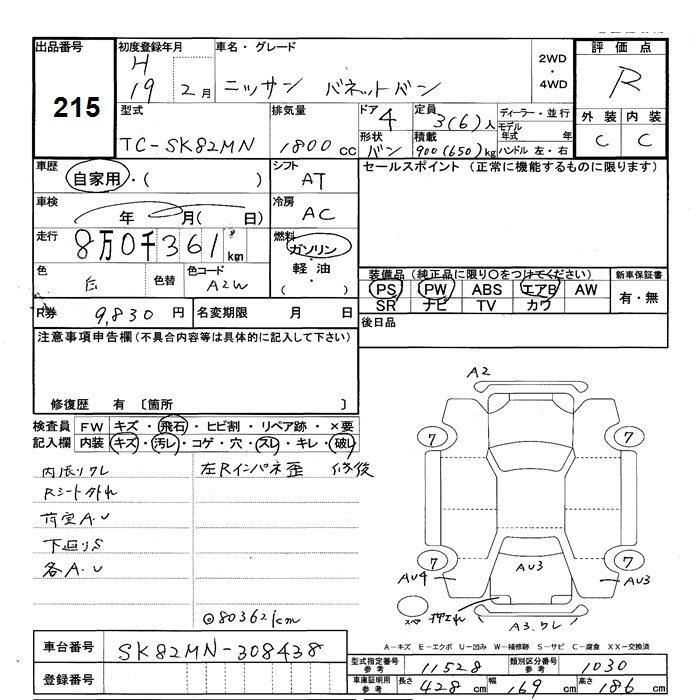 出品番号
215
初度登録年月
H
19 2月
車名・グレード
ニッサン バネットバン
2WD
・
4WD
評価点
R
外装 内装
C C
型式
TC-SK82MN
排気量
1800 cc
ドア
4
形状
バン
定員
3(6)人
積載
900(650)kg
ディーラー・並行
モデル年式 年
ハンドル 左・右
車歴
自家用・( )
シフト
AT
セールスポイント(正常に機能するものに限ります)
車検
年 月( 日)
冷房
AC
走行
8万0千361km
燃料
ガソリン
・
軽油
・
( )
色
白
色替
色コード
A2W
装備品(純正品に限り○をつけてください)
PS PW ABS エアB AW
SR ナビ TV カワ
新車保証書
有・無
R券 9,830円
名変期限 月 日
後日品
注意事項申告欄(不具合内容等は具体的に記入して下さい)
修復歴 有 〔箇所 〕
検査員記入欄
FW キズ・飛石・ヒビ割・リペア跡・×要
内装 キズ・汚レ・コゲ・穴・スレ・キレ・破レ
内張リワレ
Rシート外れ
荷室A.U
下廻りS
各A.U
左Rインパネ歪 修後
◎80362km
A2
7
7
7
7
AU4
AU3
AU3
スペ
A3.ワレ
A-キズ E-エクボ U-凹み W-補修跡 S-サビ C-腐食 XX-交換済
車台番号
SK82MN-308438
登録番号
型式指定番号 参考
11528
類別区分番号 参考
1030
車庫証明用 参考
長さ 428 cm
幅 169 cm
高さ 186 cm